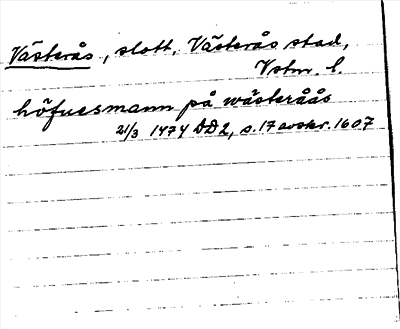 Västerås, slott, Västerås stad,
Vstm. l.
höfuesmann på wästeråås
21/3 1474 DD2, s. 17 avskr. 1607